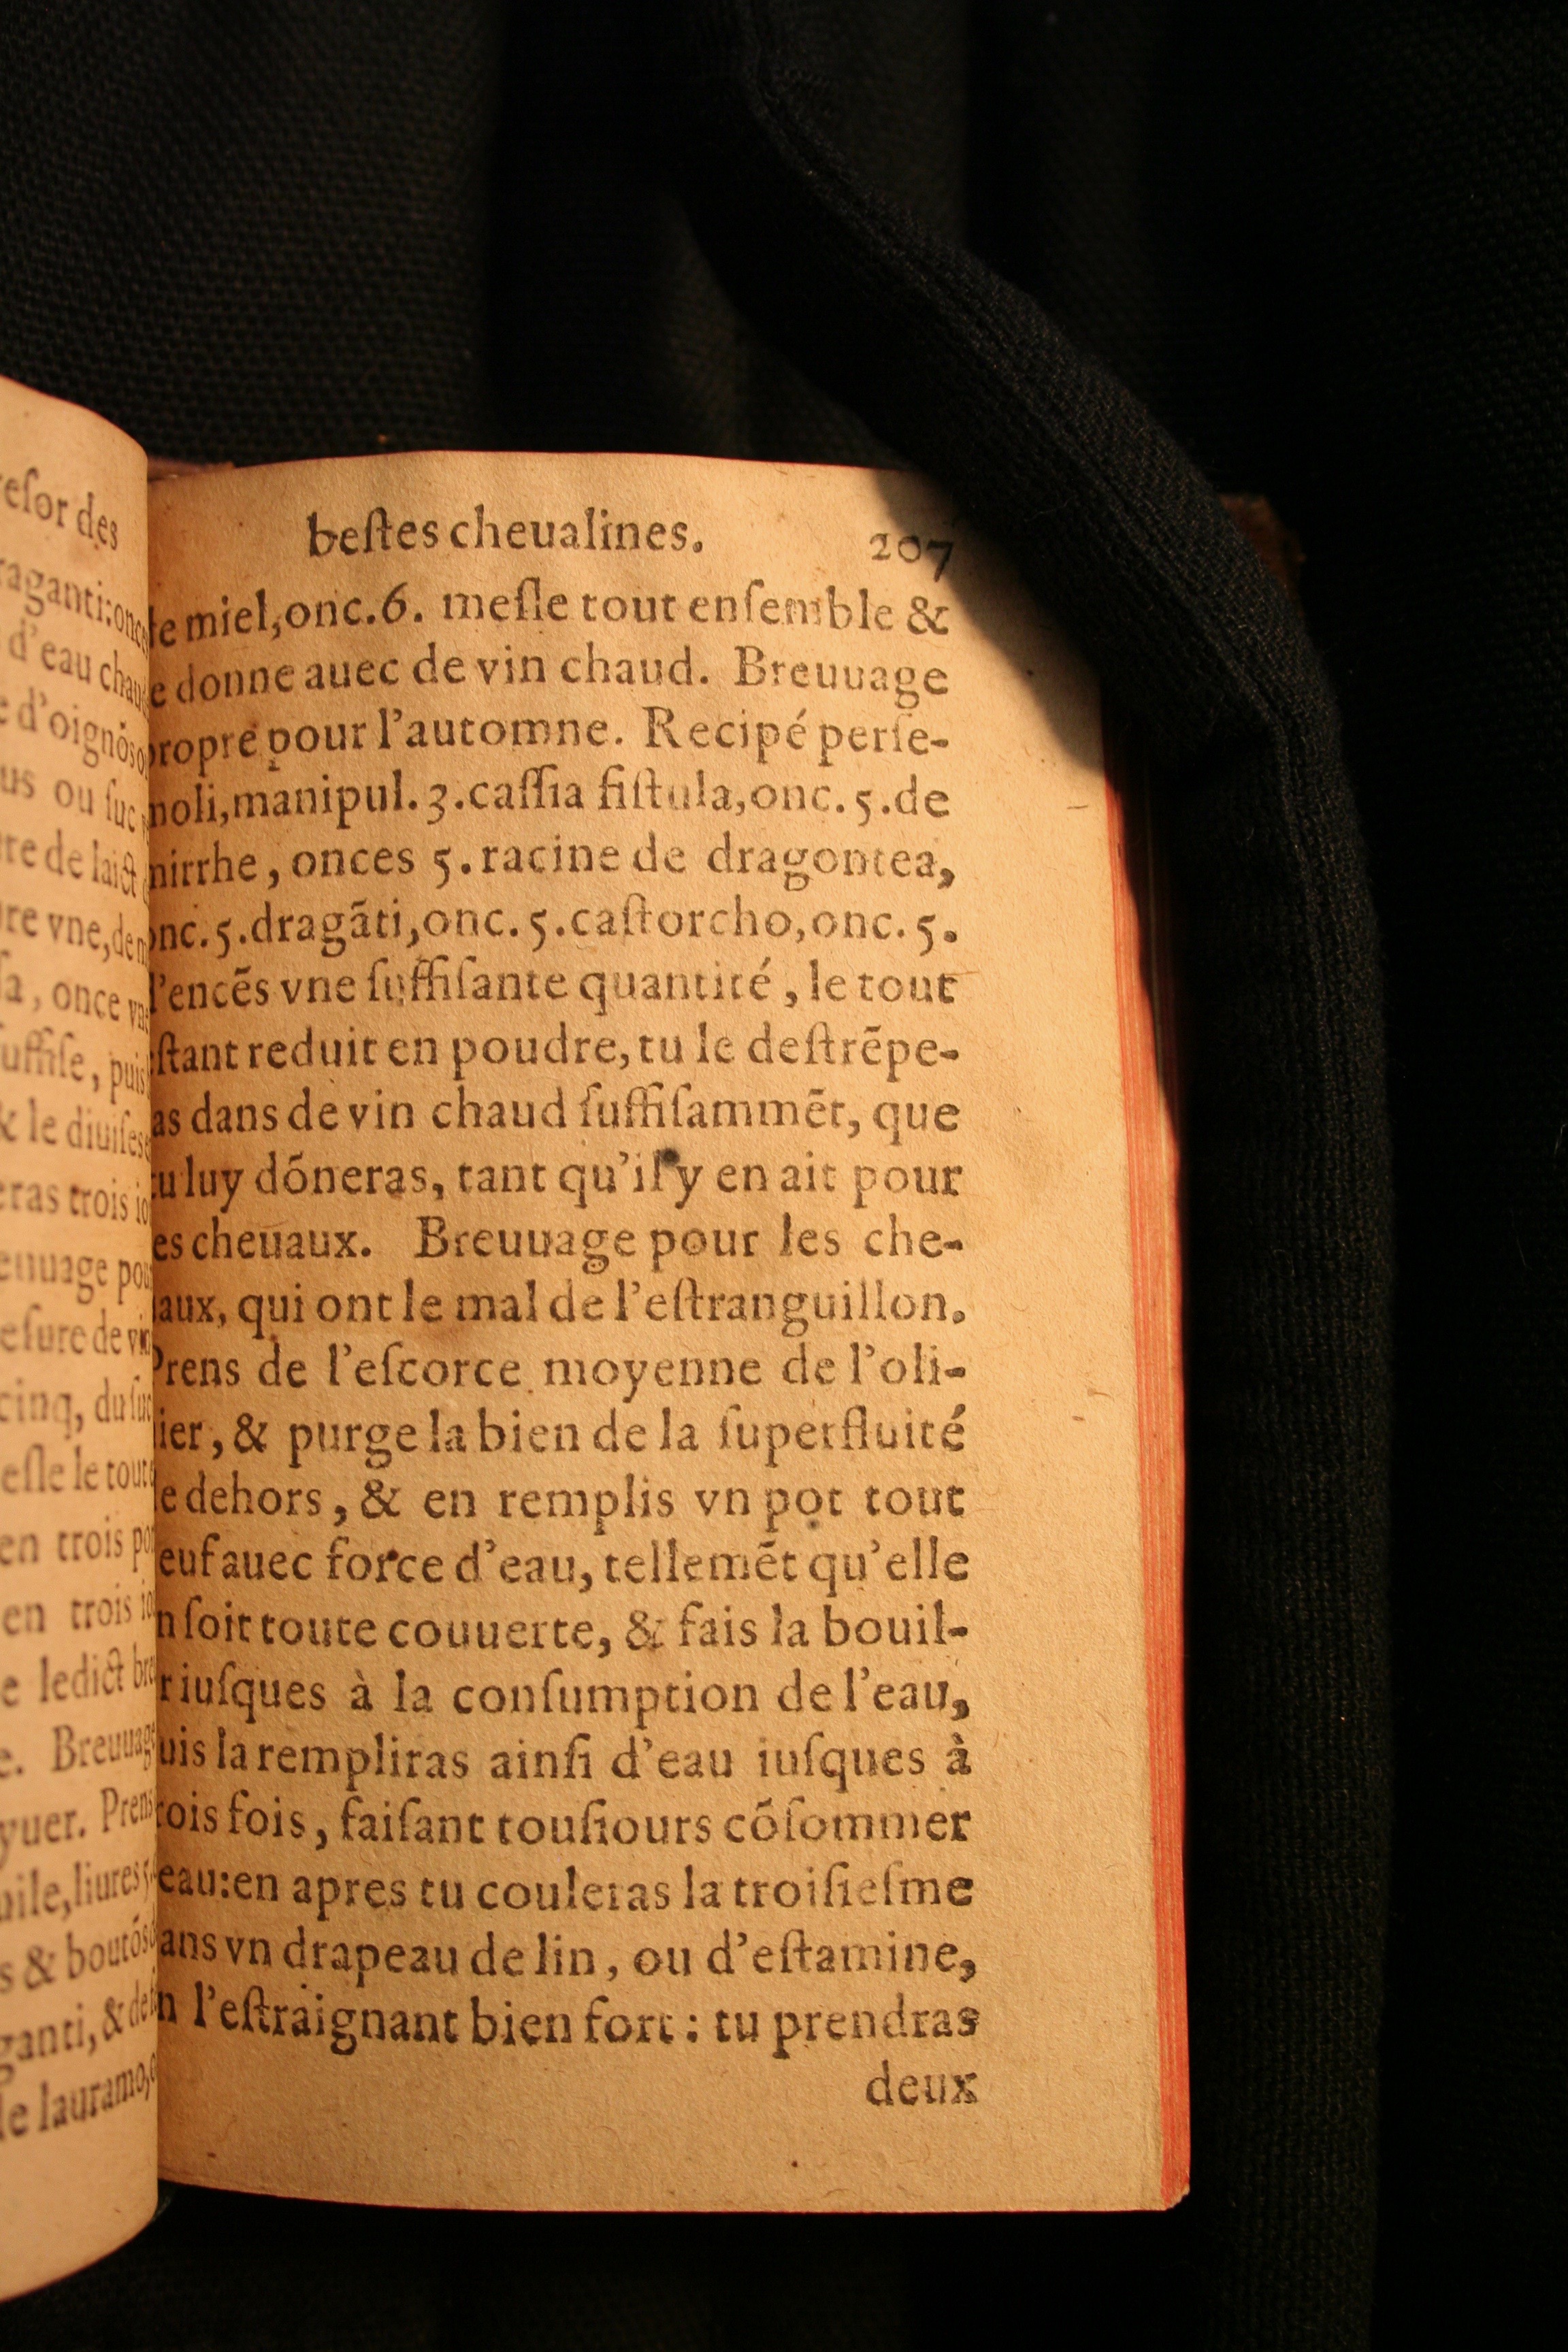 resor des
beſtes cheualines. 207
d'eau
ou ſuc
re de laict
vne,
once
puis
& le
trois
eſure de
cinq,
le tout
en trois
en trois
ledict
Breuuage
yuer. Prens
& boutõs
miel,onc.6. meſle tout enſemble &
donne auec de vin chaud. Breuuage
propre pour l'automne. Recipé perſe-
noli,manipul.3.caſſia fiſtula,onc.5.de
mirrhe, onces 5.racine de dragontea,
onc.5.dragãti,onc.5.caſtorcho,onc.5.
l'encẽs vne ſuffiſante quantité, le tout
ſtant reduit en poudre,tu le deſtrẽpe-
as dans de vin chaud ſuffiſammẽt, que
tu luy dõneras, tant qu'il y en ait pour
es cheuaux. Breuuage pour les che-
uaux, qui ont le mal de l'eſtranguillon.
Prens de l'eſcorce moyenne de l'oli-
ier, & purge la bien de la ſuperfluité
de dehors, & en remplis vn pot tout
euf auec force d'eau, tellemẽt qu'elle
n ſoit toute couuerte, & fais la bouil-
r iuſques à la conſumption de l'eau,
uis la rempliras ainſi d'eau iuſques à
rois fois, faiſant touſiours cõſommer
eau:en apres tu couleras la troiſieſme
ans vn drapeau de lin, ou d'eſtamine,
n l'eſtraignant bien fort : tu prendras
deux